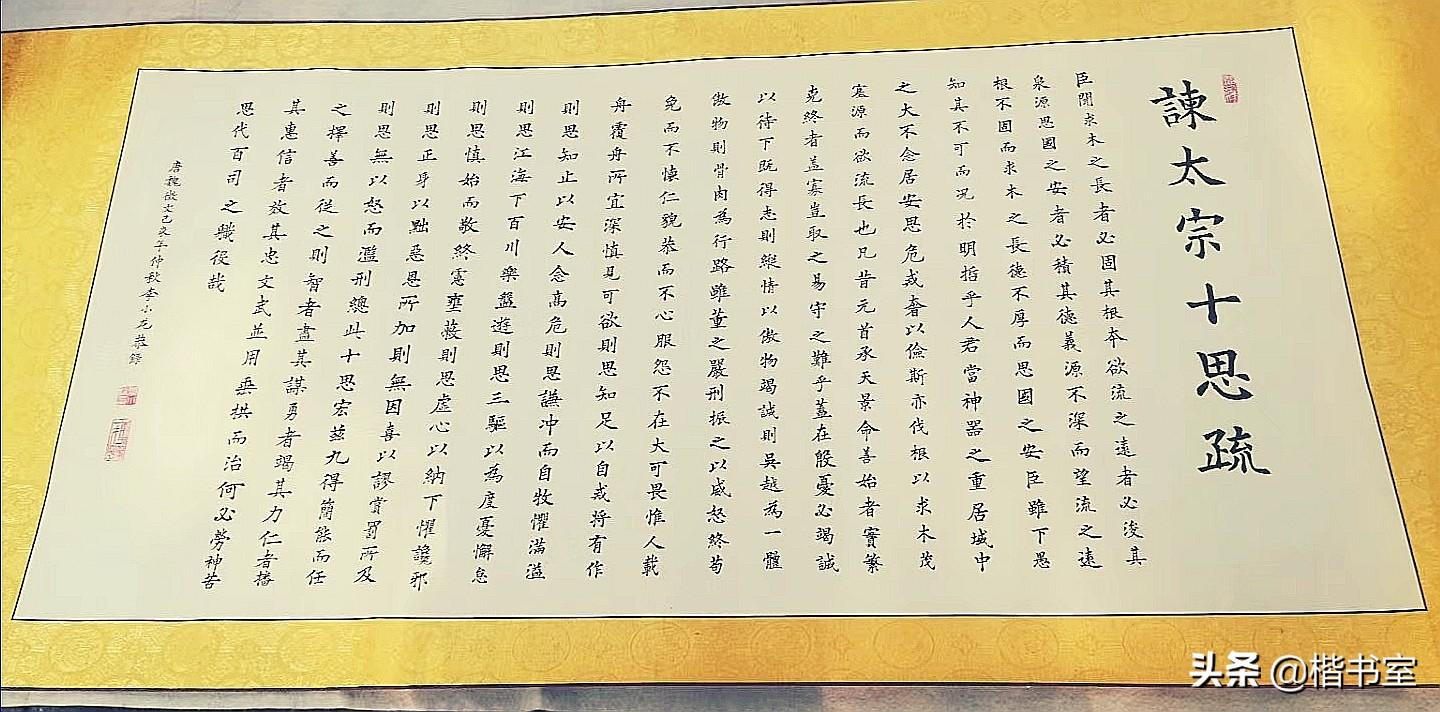 諫太宗十思疏
臣聞求木之長者必固其根本欲流之遠者必浚其
泉源思國之安者必積其德義源不深而望流之遠
根不固而求木之長德不厚而思國之安臣雖下愚
知其不可而况於明哲乎人君當神器之重居域中
之大不念居安思危戒奢以儉斯亦伐根以求木茂
塞源而欲流長也凡昔元首承天景命善始者實繁
克終者盖寡豈取之易守之難乎蓋在殷憂必竭誠
以待下既得志則縱情以傲物竭誠則吳越為一體
傲物則骨肉為行路雖董之嚴刑振之以威怒終苟
免而不懐仁貌恭而不心服怨不在大可畏惟人載
舟覆舟所宜深慎見可欲則思知足以自戒将有作
則思知止以安人念高危則思謙冲而自牧懼滿溢
則思江海下百川樂盤遊則思三驅以為度憂懈怠
則思慎始而敬終慮壅蔽則思虛心以納下懼讒邪
則思正身以黜惡恩所加則無因喜以謬賞罰所及
則思無以怒而濫刑總此十思宏茲九得簡能而任
之擇善而從之則智者盡其謀勇者竭其力仁者播
其惠信者效其忠文武並用垂拱而治何必勞神苦
思代百司之職役哉
唐魏徵文己亥年仲秋李小龙恭錄
头条 @楷书室